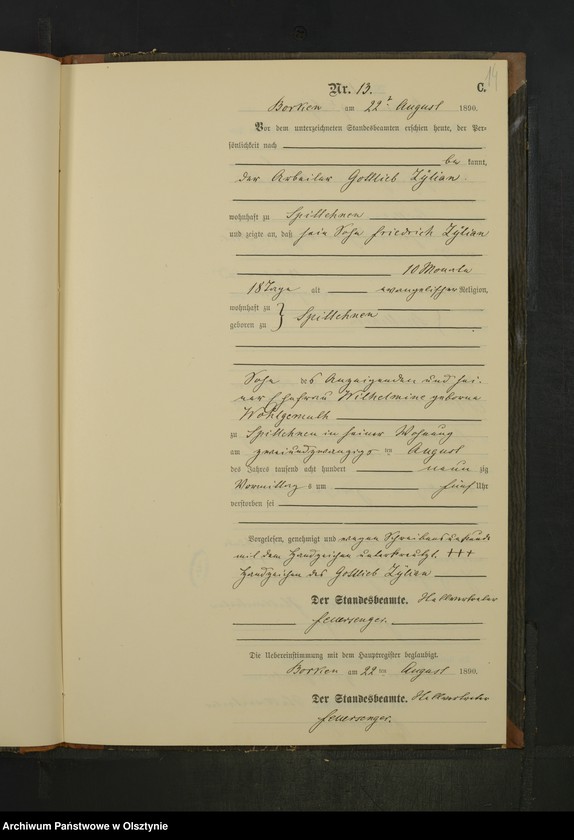 14
Nr. 13. C.
Borken am 22t August 1890.
Vor dem unterzeichneten Standesbeamten erschien heute, der Per-
sönlichkeit nach
be kannt,
der Arbeiter Gottlieb Zÿlian
wohnhaft zu Spittehnen
und zeigte an, daß sein Sohn Friedrich Zÿlian
10 Monate
18 Tage alt evangelischer Religion,
wohnhaft zu
geboren zu } Spittehnen
Sohn des Anzeigenden und sei-
ner Ehefrau Wilhelmine geborne
Wohlgemuth
zu Spittehnen in seiner Wohnung
am zweiundzwanzigsten August
des Jahres tausend acht hundert neun zig
Vormittags um fünf Uhr
verstorben sei
Vorgelesen, genehmigt und wegen Schreibensunkunde
mit dem Handzeichen unterkreuzt. +++
Handzeichen des Gottlieb Zÿlian
Der Standesbeamte. Stellvertreter
Feuersenger.
Die Uebereinstimmung mit dem Hauptregister beglaubigt.
Borken am 22ten August 1890.
Der Standesbeamte. Stellvertreter
Feuersenger.
Archiwum Państwowe w Olsztynie